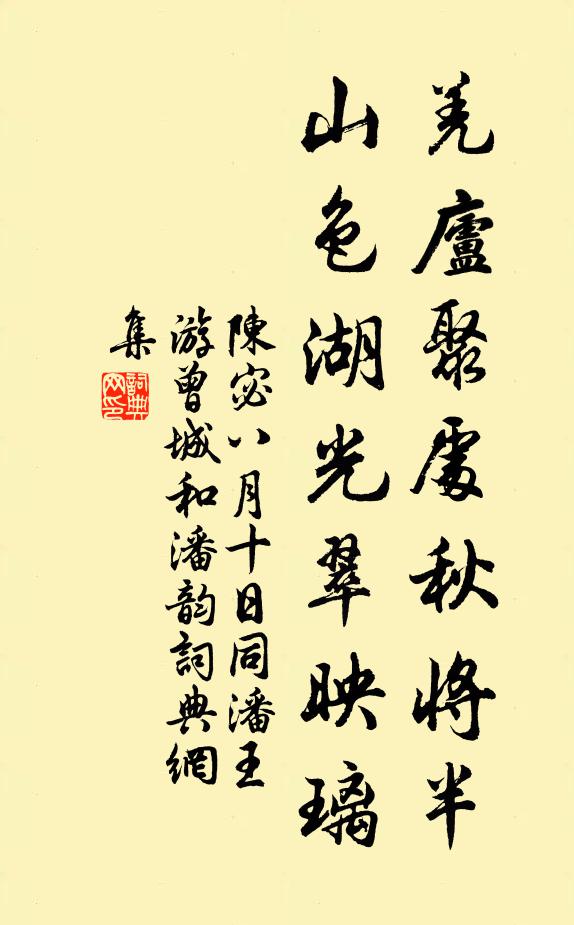 羌廬聚處秋將半
山色湖光翠映璃
陳宓八月十日同潘王
游曾城和潘韵詞典網
集
詞典
网印